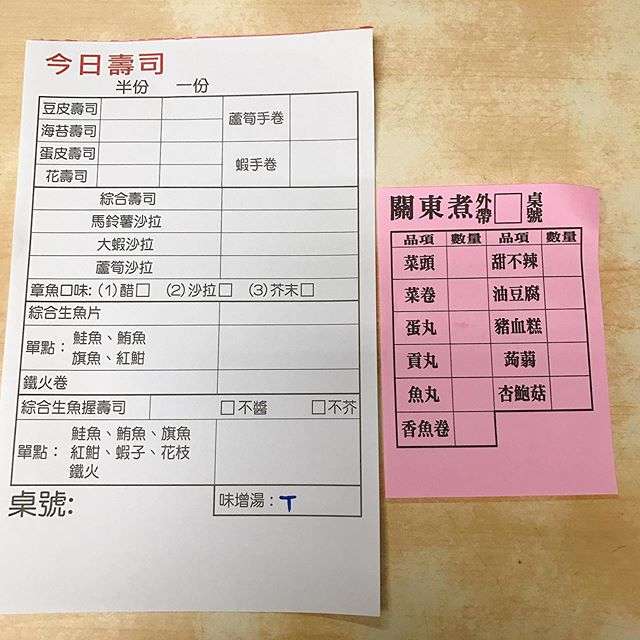 今日壽司
半份 一份
豆皮壽司
海苔壽司
蛋皮壽司
花壽司
蘆筍手卷
蝦手卷
綜合壽司
馬鈴薯沙拉
大蝦沙拉
蘆筍沙拉
章魚口味:(1)醋□ (2)沙拉□ (3)芥末□
綜合生魚片
單點：鮭魚、鮪魚
旗魚、紅魽
鐵火卷
綜合生魚握壽司 □不醬 □不芥
單點：鮭魚、鮪魚、旗魚
紅魽、蝦子、花枝
鐵火
桌號:
味增湯：T
關東煮 外帶□桌號
品項 數量 品項 數量
菜頭 甜不辣
菜卷 油豆腐
蛋丸 豬血糕
貢丸 蒟蒻
魚丸 杏鮑菇
香魚卷